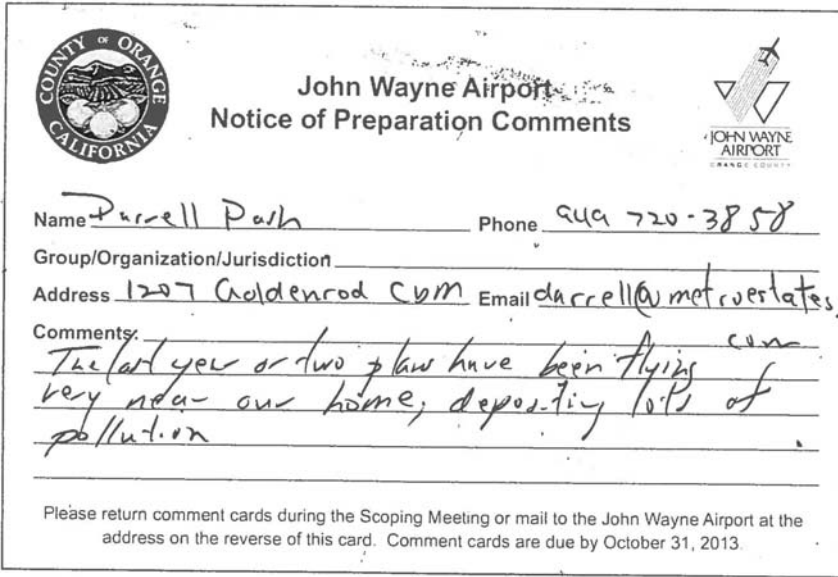 COUNTY OF ORANGE
CALIFORNIA
John Wayne Airport
Notice of Preparation Comments
JOHN WAYNE
AIRPORT
ORANGE COUNTY
Name Darrell Pash Phone 949 720-3858
Group/Organization/Jurisdiction
Address 1207 Goldenrod CDM Email darrell@metroestates.
com
Comments:
The last year or two plans have been flying
very near our home, depositing lots of
pollution.
Please return comment cards during the Scoping Meeting or mail to the John Wayne Airport at the
address on the reverse of this card. Comment cards are due by October 31, 2013.